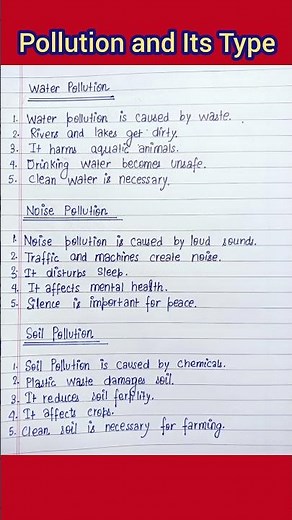 Pollution and Its Type
Water Pollution
1. Water pollution is caused by waste.
2. Rivers and lakes get dirty.
3. It harms aquatic animals.
4. Drinking water becomes unsafe.
5. Clean water is necessary.
Noise Pollution
1. Noise pollution is caused by loud sounds.
2. Traffic and machines create noise.
3. It disturbs sleep.
4. It affects mental health.
5. Silence is important for peace.
Soil Pollution
1. Soil Pollution is caused by chemicals.
2. Plastic waste damages soil.
3. It reduces soil fertility.
4. It affects crops.
5. Clean soil is necessary for farming.